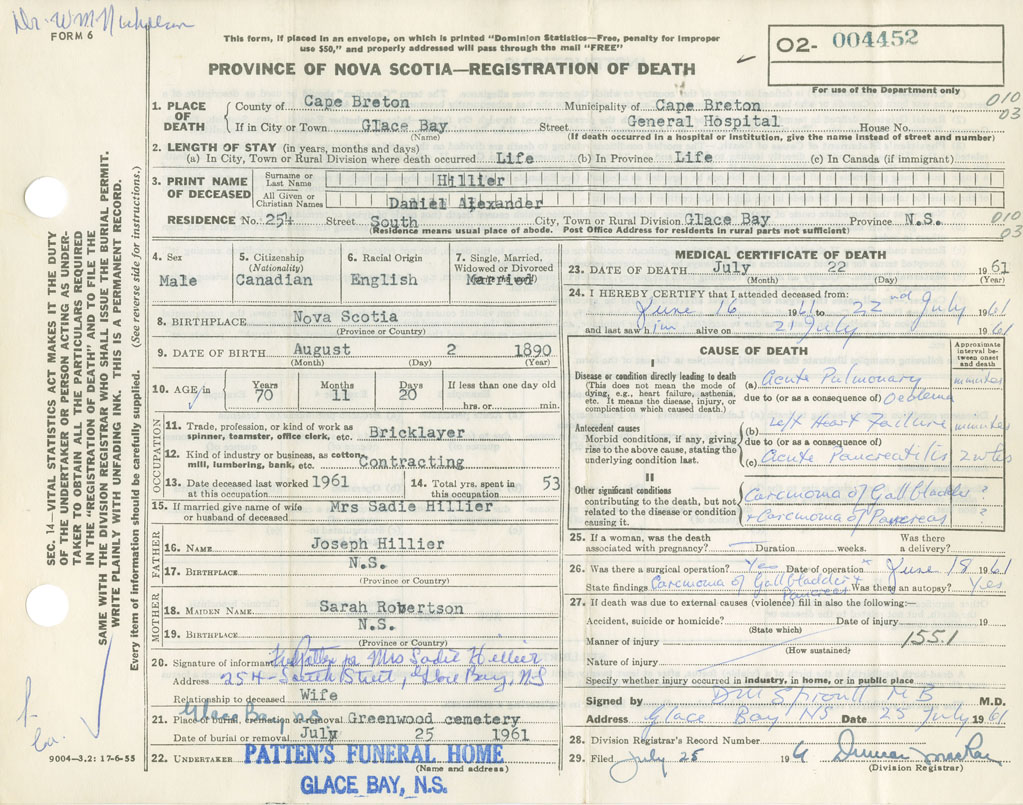 Dr. W M Nicholson
FORM 6
This form, if placed in an envelope, on which is printed "Dominion Statistics—Free, penalty for improper
use $50," and properly addressed will pass through the mail "FREE"
PROVINCE OF NOVA SCOTIA—REGISTRATION OF DEATH
02- 004452
For use of the Department only
1. PLACE OF DEATH
County of Cape Breton Municipality of Cape Breton
010
03
If in City or Town Glace Bay Street General Hospital House No.
(Name) (If death occurred in a hospital or institution, give the name instead of street and number)
2. LENGTH OF STAY (in years, months and days)
(a) In City, Town or Rural Division where death occurred Life (b) In Province Life (c) In Canada (if immigrant)
3. PRINT NAME OF DECEASED
Surname or Last Name Hillier
All Given or Christian Names Daniel Alexander
RESIDENCE No. 254 Street South City, Town or Rural Division Glace Bay Province N.S.
010
03
(Residence means usual place of abode. Post Office Address for residents in rural parts not sufficient)
4. Sex
Male
5. Citizenship
(Nationality)
Canadian
6. Racial Origin
English
7. Single, Married,
Widowed or Divorced
Married
8. BIRTHPLACE Nova Scotia
(Province or Country)
9. DATE OF BIRTH August 2 1890
(Month) (Day) (Year)
10. AGE in
Years Months Days If less than one day old
70 11 20 hrs. or min.
OCCUPATION
11. Trade, profession, or kind of work as
spinner, teamster, office clerk, etc. Bricklayer
12. Kind of industry or business, as cotton
mill, lumbering, bank, etc. Contracting
13. Date deceased last worked 1961 14. Total yrs. spent in
at this occupation this occupation 53
15. If married give name of wife
or husband of deceased Mrs Sadie Hillier
FATHER
16. NAME Joseph Hillier
17. BIRTHPLACE N.S.
(Province or Country)
MOTHER
18. MAIDEN NAME Sarah Robertson
19. BIRTHPLACE N.S.
(Province or Country)
20. Signature of informant Patten for Mrs Sadie Hillier
Address 254 - South Street, Glace Bay, N.S
Relationship to deceased Wife
Glace Bay NS
21. Place of burial, cremation or removal Greenwood cemetery
Date of burial or removal July 25 1961
22. UNDERTAKER PATTEN'S FUNERAL HOME
(Name and address)
GLACE BAY, N.S.
MEDICAL CERTIFICATE OF DEATH
23. DATE OF DEATH July 22 1961
(Month) (Day) (Year)
24. I HEREBY CERTIFY that I attended deceased from:
June 16 1961 to 22nd July 1961
and last saw him alive on 21 July 1961
CAUSE OF DEATH
Approximate
interval be-
tween onset
and death
I
Disease or condition directly leading to death
(This does not mean the mode of
dying, e.g., heart failure, asthenia,
etc. It means the disease, injury, or
complication which caused death.)
(a) Acute Pulmonary minutes
due to (or as a consequence of) Oedema
Antecedent causes
Morbid conditions, if any, giving
rise to the above cause, stating the
underlying condition last.
(b) Heart Failure minutes
due to (or as a consequence of)
(c) Acute Pancreatitis 2 wks
II
Other significant conditions
contributing to the death, but not
related to the disease or condition
causing it.
Carcinoma of Gall bladder ?
+ Carcinoma of Pancreas ?
25. If a woman, was the death
associated with pregnancy? Duration weeks.
Was there
a delivery?
26. Was there a surgical operation? Yes Date of operation June 18 1961
State findings Carcinoma of Gall bladder + Pancreas Was there an autopsy? Yes
27. If death was due to external causes (violence) fill in also the following:—
Accident, suicide or homicide? Date of injury 19
(State which)
Manner of injury 155.1
(How sustained)
Nature of injury
Specify whether injury occurred in industry, in home, or in public place
Signed by D M Sproull M B M.D.
Address Glace Bay NS Date 25 July 1961
28. Division Registrar's Record Number
29. Filed July 25 196 Duncan
(Division Registrar)
SEC. 14—VITAL STATISTICS ACT MAKES IT THE DUTY
OF THE UNDERTAKER OR PERSON ACTING AS UNDER-
TAKER TO OBTAIN ALL THE PARTICULARS REQUIRED
IN THE "REGISTRATION OF DEATH" AND TO FILE THE
SAME WITH THE DIVISION REGISTRAR WHO SHALL ISSUE THE BURIAL PERMIT.
WRITE PLAINLY WITH UNFADING INK. THIS IS A PERMANENT RECORD.
Every item of information should be carefully supplied. (See reverse side for instructions.)
9004—3.2: 17-6-55